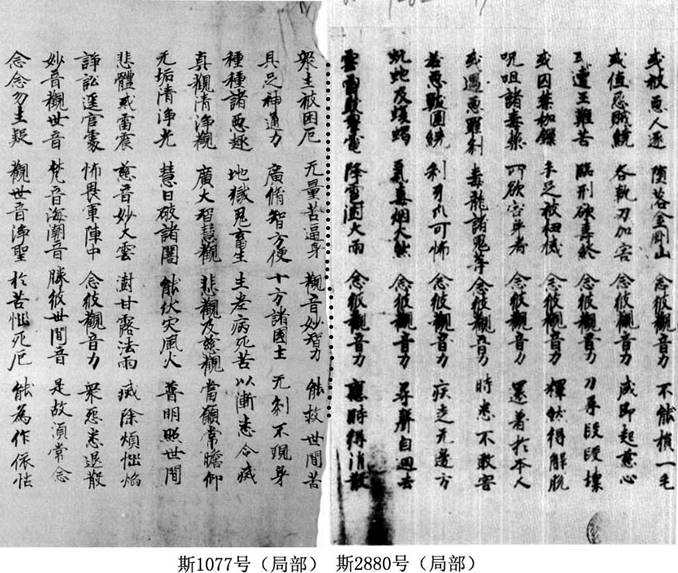 或被惡人逐 墮落金剛山 念彼觀音力 不能損一毛
或值怨賊繞 各執刀加害 念彼觀音力 咸即起慈心
或遭王難苦 臨刑欲壽終 念彼觀音力 刀尋段段壞
或囚禁枷鎖 手足被杻械 念彼觀音力 釋然得解脫
呪咀諸毒藥 所欲害身者 念彼觀音力 還著於本人
或遇惡羅刹 毒龍諸鬼等 念彼觀音力 時悉不敢害
若惡獸圍繞 利牙爪可怖 念彼觀音力 疾走无邊方
蚖蛇及蝮蝎 氣毒烟火然 念彼觀音力 尋聲自迴去
雲雷鼓掣電 降雹澍大雨 念彼觀音力 應時得消散
眾生被困厄 无量苦逼身 觀音妙智力 能救世間苦
具足神通力 廣脩智方便 十方諸國土 无刹不現身
種種諸惡趣 地獄鬼畜生 生老病死苦 以漸悉令滅
真觀清淨觀 廣大智慧觀 悲觀及慈觀 常願常瞻仰
无垢清淨光 慧日破諸闇 能伏灾風火 普明照世間
悲體戒雷震 慈音妙大雲 澍甘露法雨 滅除煩惱焰
諍訟逕官處 怖畏軍陣中 念彼觀音力 眾怨悉退散
妙音觀世音 梵音海潮音 勝彼世間音 是故須常念
念念勿生疑 觀世音淨聖 於苦惱死厄 能為作依怙
斯1077号（局部） 斯2880号（局部）